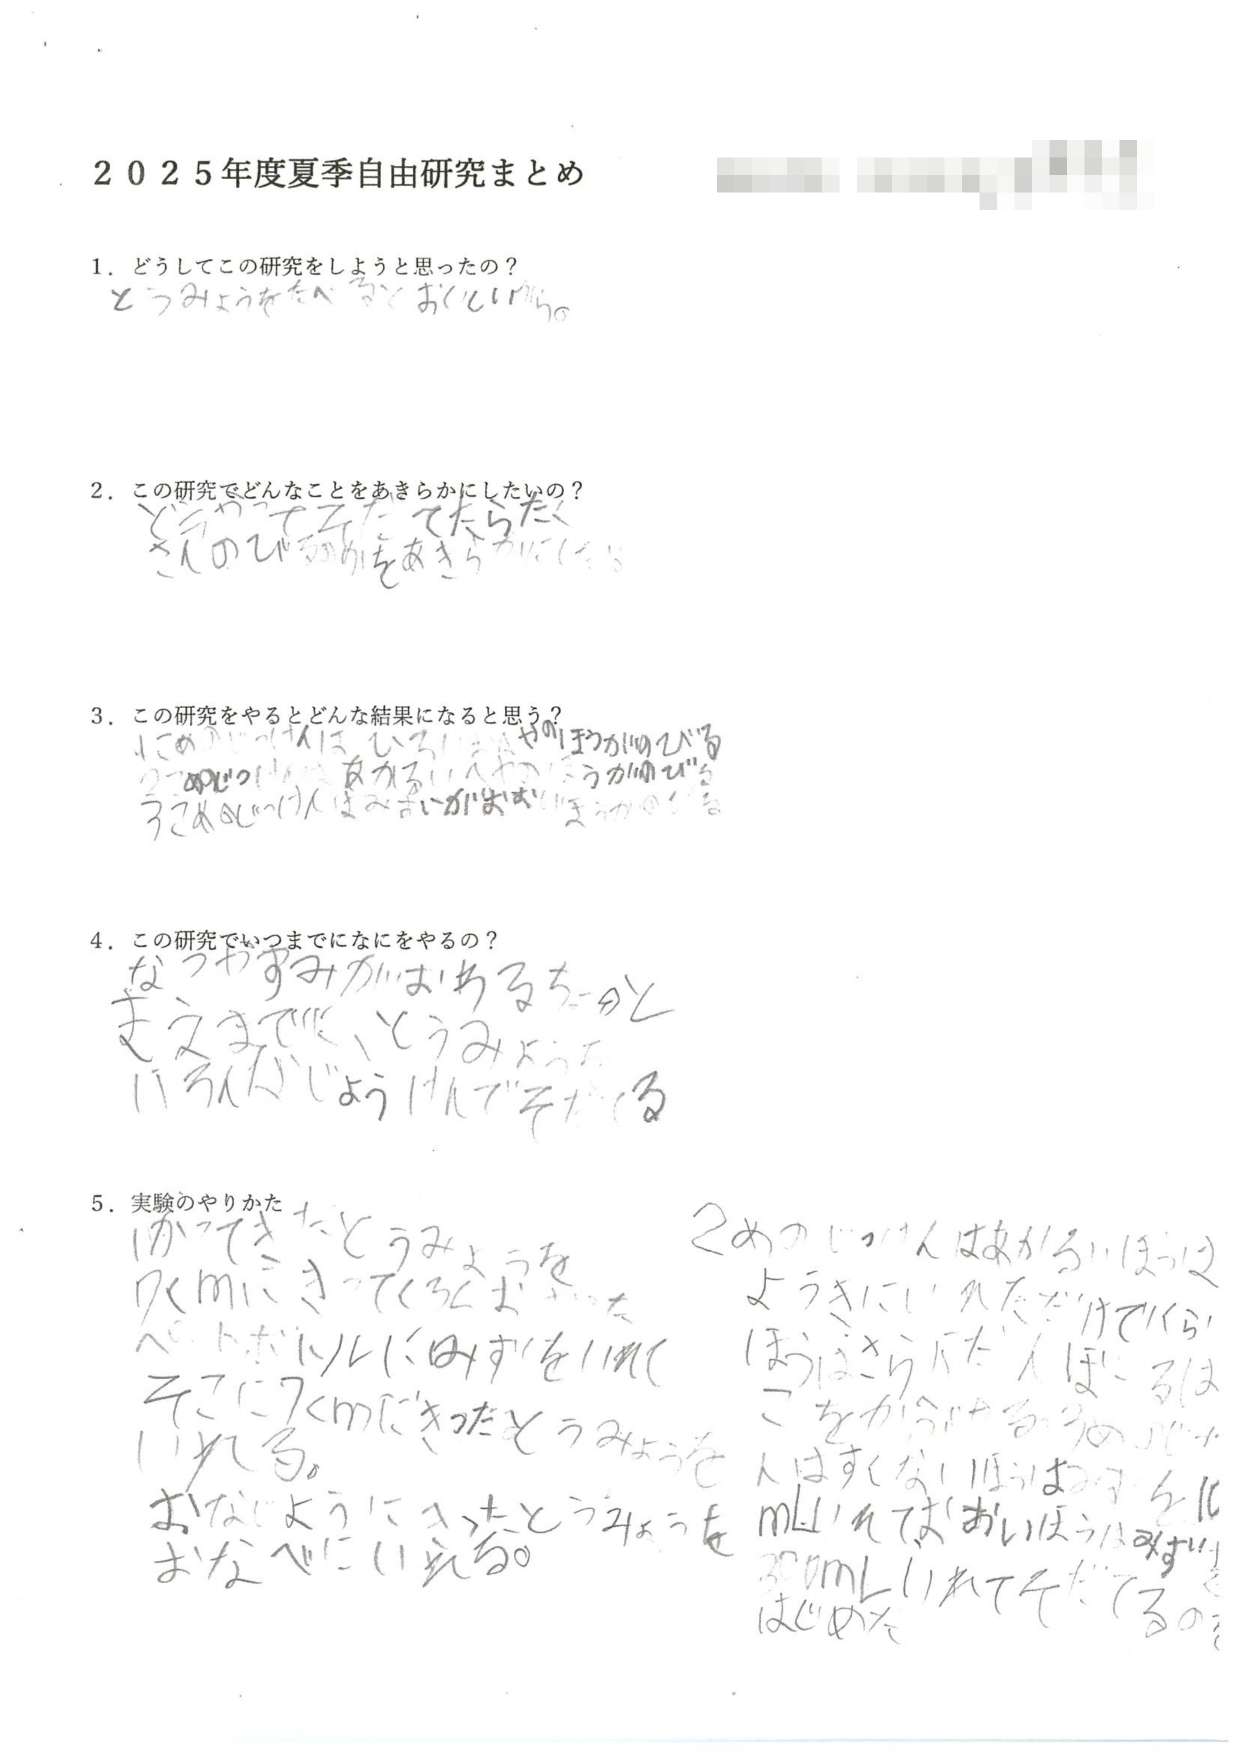 2025年度夏季自由研究まとめ
1．どうしてこの研究をしようと思ったの？
とうみょうをたべるとおいしいから。
2．この研究でどんなことをあきらかにしたいの？
どうやってそだてたらたく
さんのびるのかをあきらかにしたい
3．この研究をやるとどんな結果になると思う？
じっけんは ひろい ほうがのびる
めのじっけんは あかるいへやのほうがのびる
うこめのじっけんはみずがおおいほうがのびる
4．この研究でいつまでになにをやるの？
なつやすみがおわるちょっと
まえまでに、とうみょうを
いろんなじょうけんでそだてる
5．実験のやりかた
かってきたとうみょうを
7cmにきってくろく
ペットボトルにみずをいれて
そこに7cmにきったとうみょうを
いれる。
おなじようにきったとうみょうを
おなべにいれる。
2めのじっけんはあかるいほうは
ようきにいれただけでくらい
ほうはさらにだんぼーるは
こをかぶせる
んはすくないほうはみずを
mLいれておおいほうはみず
300mLいれてそだてるの
はじめた